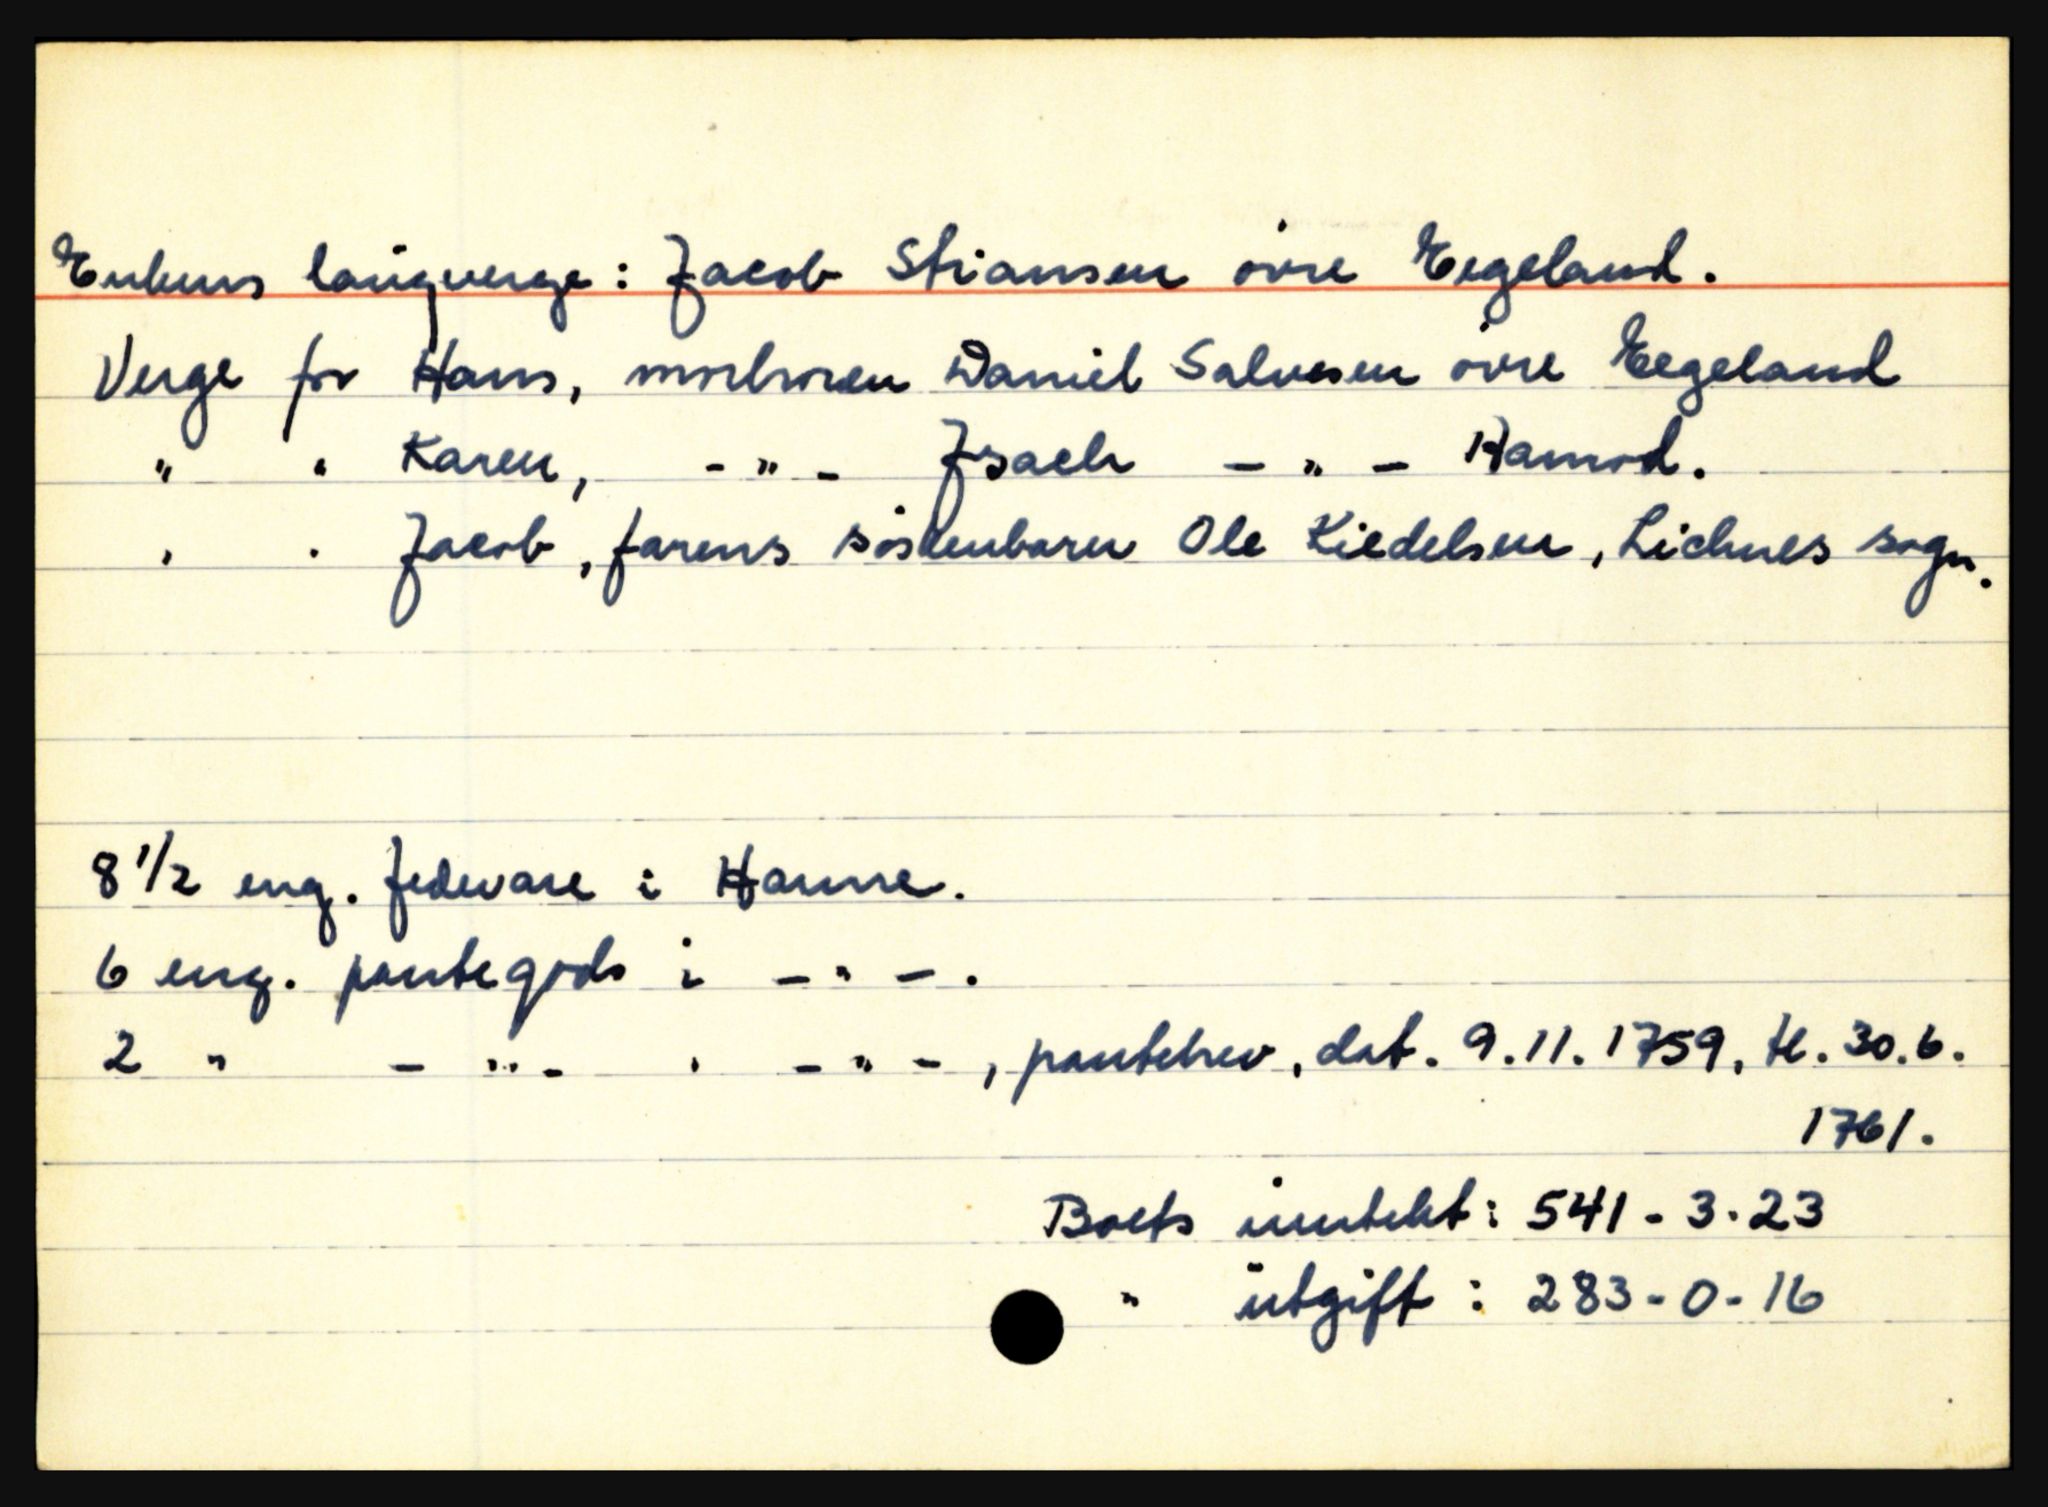 Enkens laugverge: Jacob Stiansen øvre Eegeland.
Verge for Hans, morbroren Daniel Salvesen øvre Eegeland
" " Karen, -"- Isach -"- Ramod.
" " Jacob, farens søskenbarn Ole Kiedelsen, Lichnes sogn.
8 1/2 eng. fedevare i Hamre.
6 eng. pantegods i -"-.
2 " -"- " -"-, pantebrev, dat. 9.11.1759, tl. 30.6.
1761.
Boets inntekt: 541-3-23
" utgift: 283-0-16